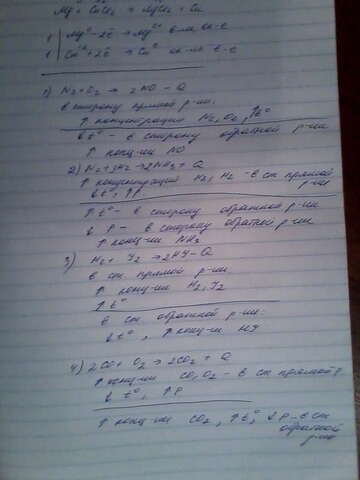 Mg + CuCl₂ → MgCl₂ + Cu
1 | Mg⁰ - 2ē → Mg²⁺ в-ль ок-е
1 | Cu⁺² + 2ē → Cu⁰ ок-ль в-е
1) N₂ + O₂ → 2NO - Q
в сторону прямой р-ии:
↑ концентрации N₂, O₂, ↑t°
↓t° - в сторону обратной р-ии
↑ конц-ии NO
2) N₂ + 3H₂ → 2NH₃ + Q
↑ концентраций N₂, H₂ - в ст. прямой р-ии
↓t, ↑P
↑t° - в сторону обратной р-ии
↓ P - в сторону обратной р-ии
↑ конц-ии NH₃
3) H₂ + J₂ → 2HJ - Q
в ст. прямой р-ии
↑ конц-ии H₂, J₂
↑t°
в ст. обратной р-ии:
↓t°, ↑ конц-ии HJ
4) 2CO + O₂ → 2CO₂ + Q
↑ конц-ии CO, O₂ - в ст прямой р
↓ t°, ↑P
↑ конц-ии CO₂, ↑t°, ↓P - в ст
обратной
р-ии